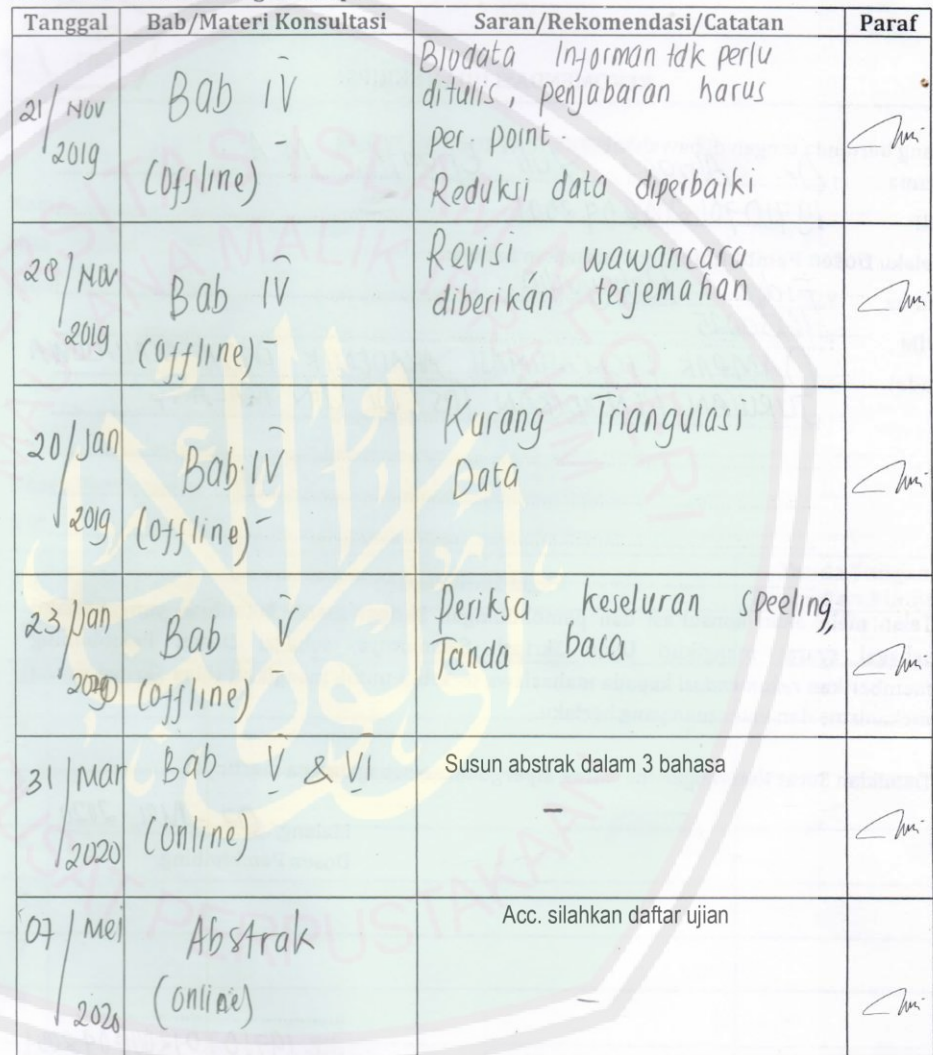 Tanggal Bab/Materi Konsultasi Saran/Rekomendasi/Catatan Paraf
21/Nov 2019
Bab IV
(Offline)
Biodata Informan tdk perlu
ditulis, penjabaran harus
per point.
Reduksi data diperbaiki
28/Nov 2019
Bab IV
(Offline)
Revisi wawancara
diberikan terjemahan
20/Jan 2019
Bab IV
(Offline)
Kurang Triangulasi
Data
23/Jan 2020
Bab V
(Offline)
Periksa keseluran Speeling,
Tanda baca
31/Mar 2020
Bab V & VI
(Online)
Susun abstrak dalam 3 bahasa
07/Mei 2020
Abstrak
(Online)
Acc. silahkan daftar ujian
PERPUSTAKAAN